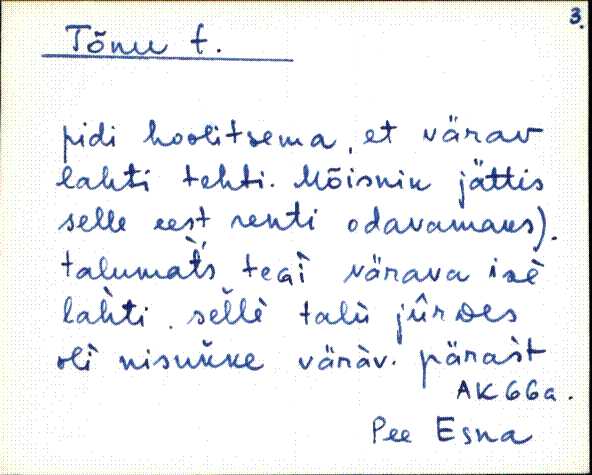 3.
Tõnu t.
pidi hoolitsema, et värav
lahti tehti. Mõisnik jättis
selle eest renti odavamaks).
talumàt̀s tegì värava isè
lah̀ti. sel̆lè talù jûrdes
olì nisuk̆ke väràv. päras̀t
AK 66a.
Pee Esna